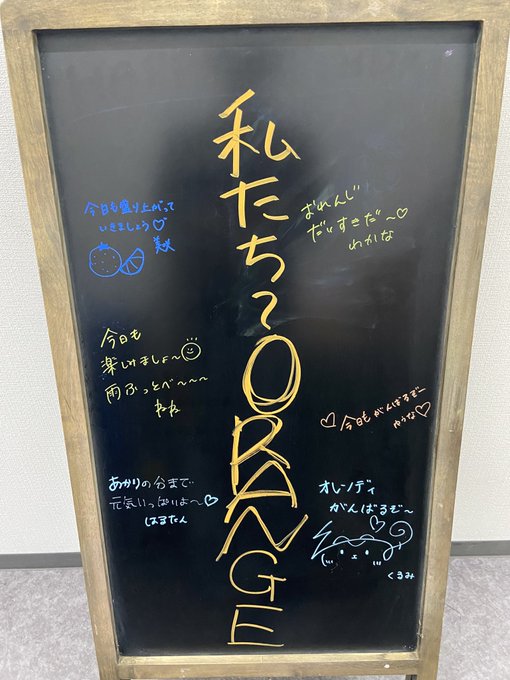 私たち〜ORANGE
今日も盛り上がって
いきましょう♡
美咲
おれんじ
だいすきだ〜♡
わかな
今日も
楽しみましょ〜
雨ふっとべ〜〜〜
ねね
♡今日もがんばるぞー
ゆうな♡
あかりの分まで
元気いっぱいよ〜♡
はるたん
オレンディ
がんばるぞ〜
♡
くるみ